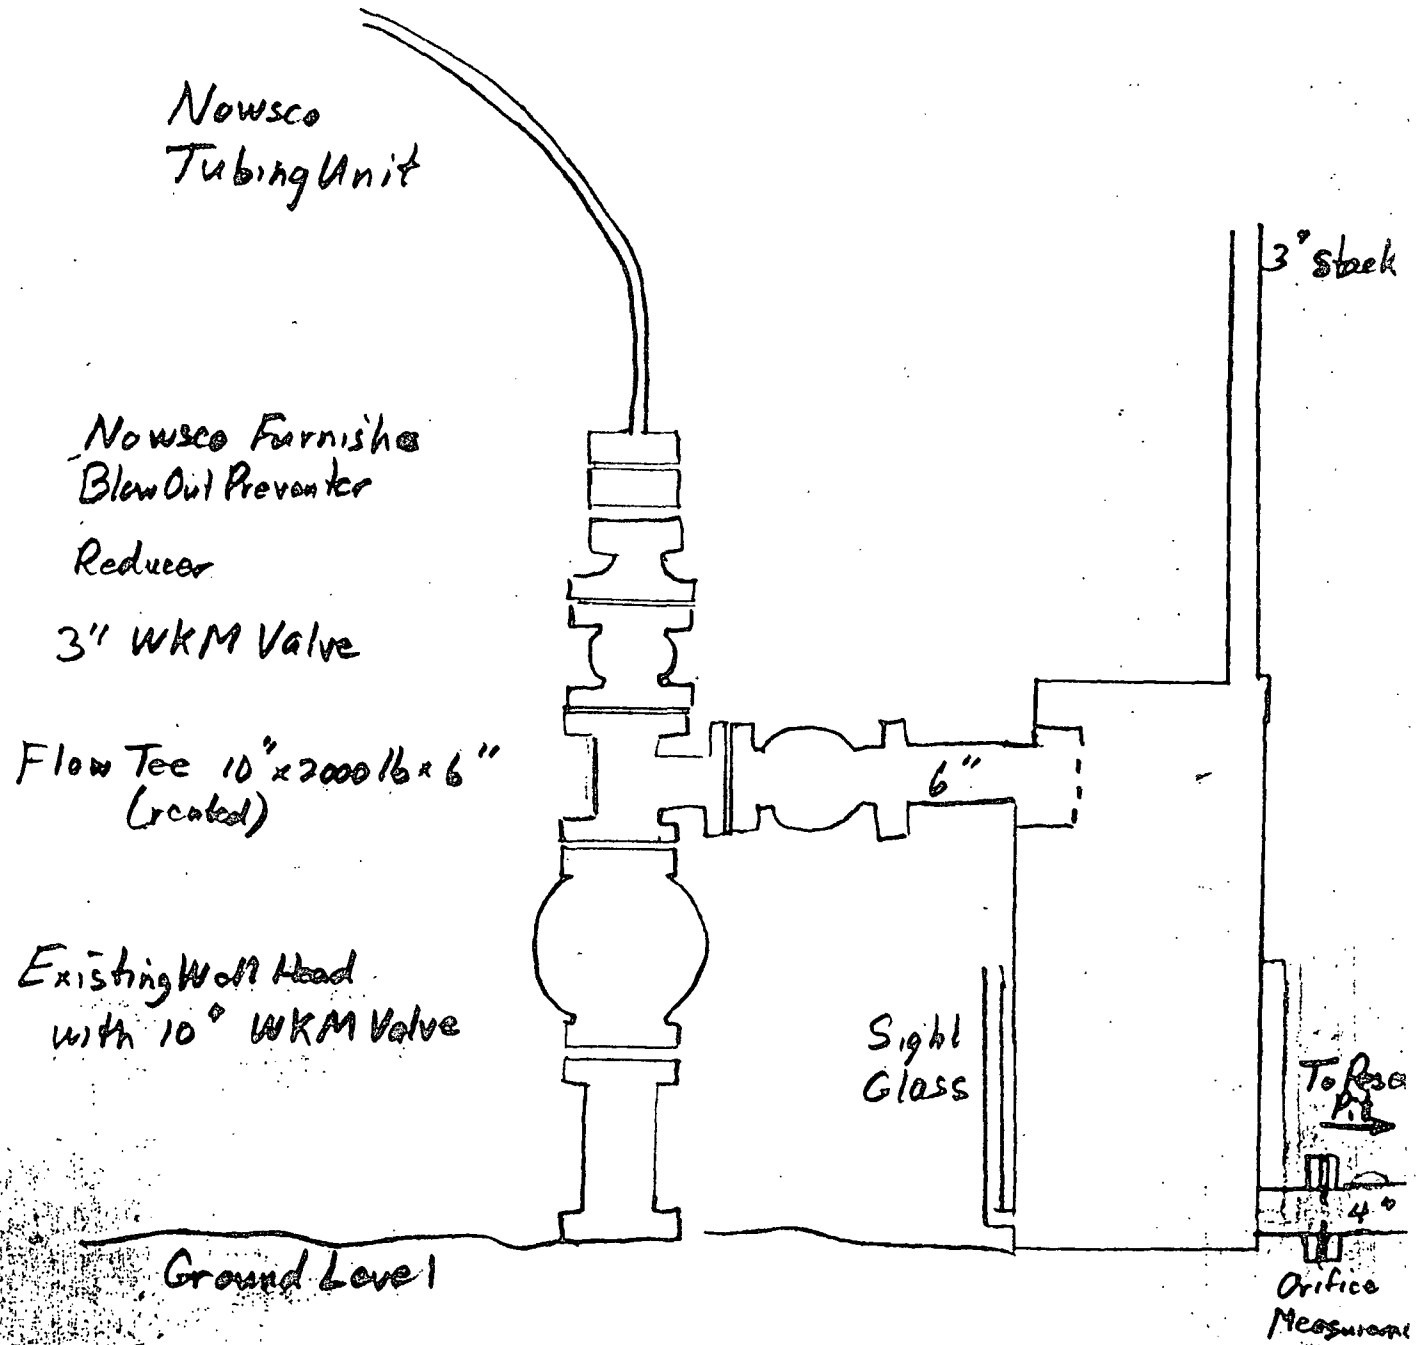 Nowsco
Tubing Unit
3" Stack
Nowsco Furnishe
Blow Out Preventer
Reducer
3" WKM Valve
Flow Tee 10" x 2000 lb x 6"
6"
Existing Well Head
with 10" WKM Valve
Sight
Glass
To Rese
Pit
4"
Ground Level
Orifice
Measureme